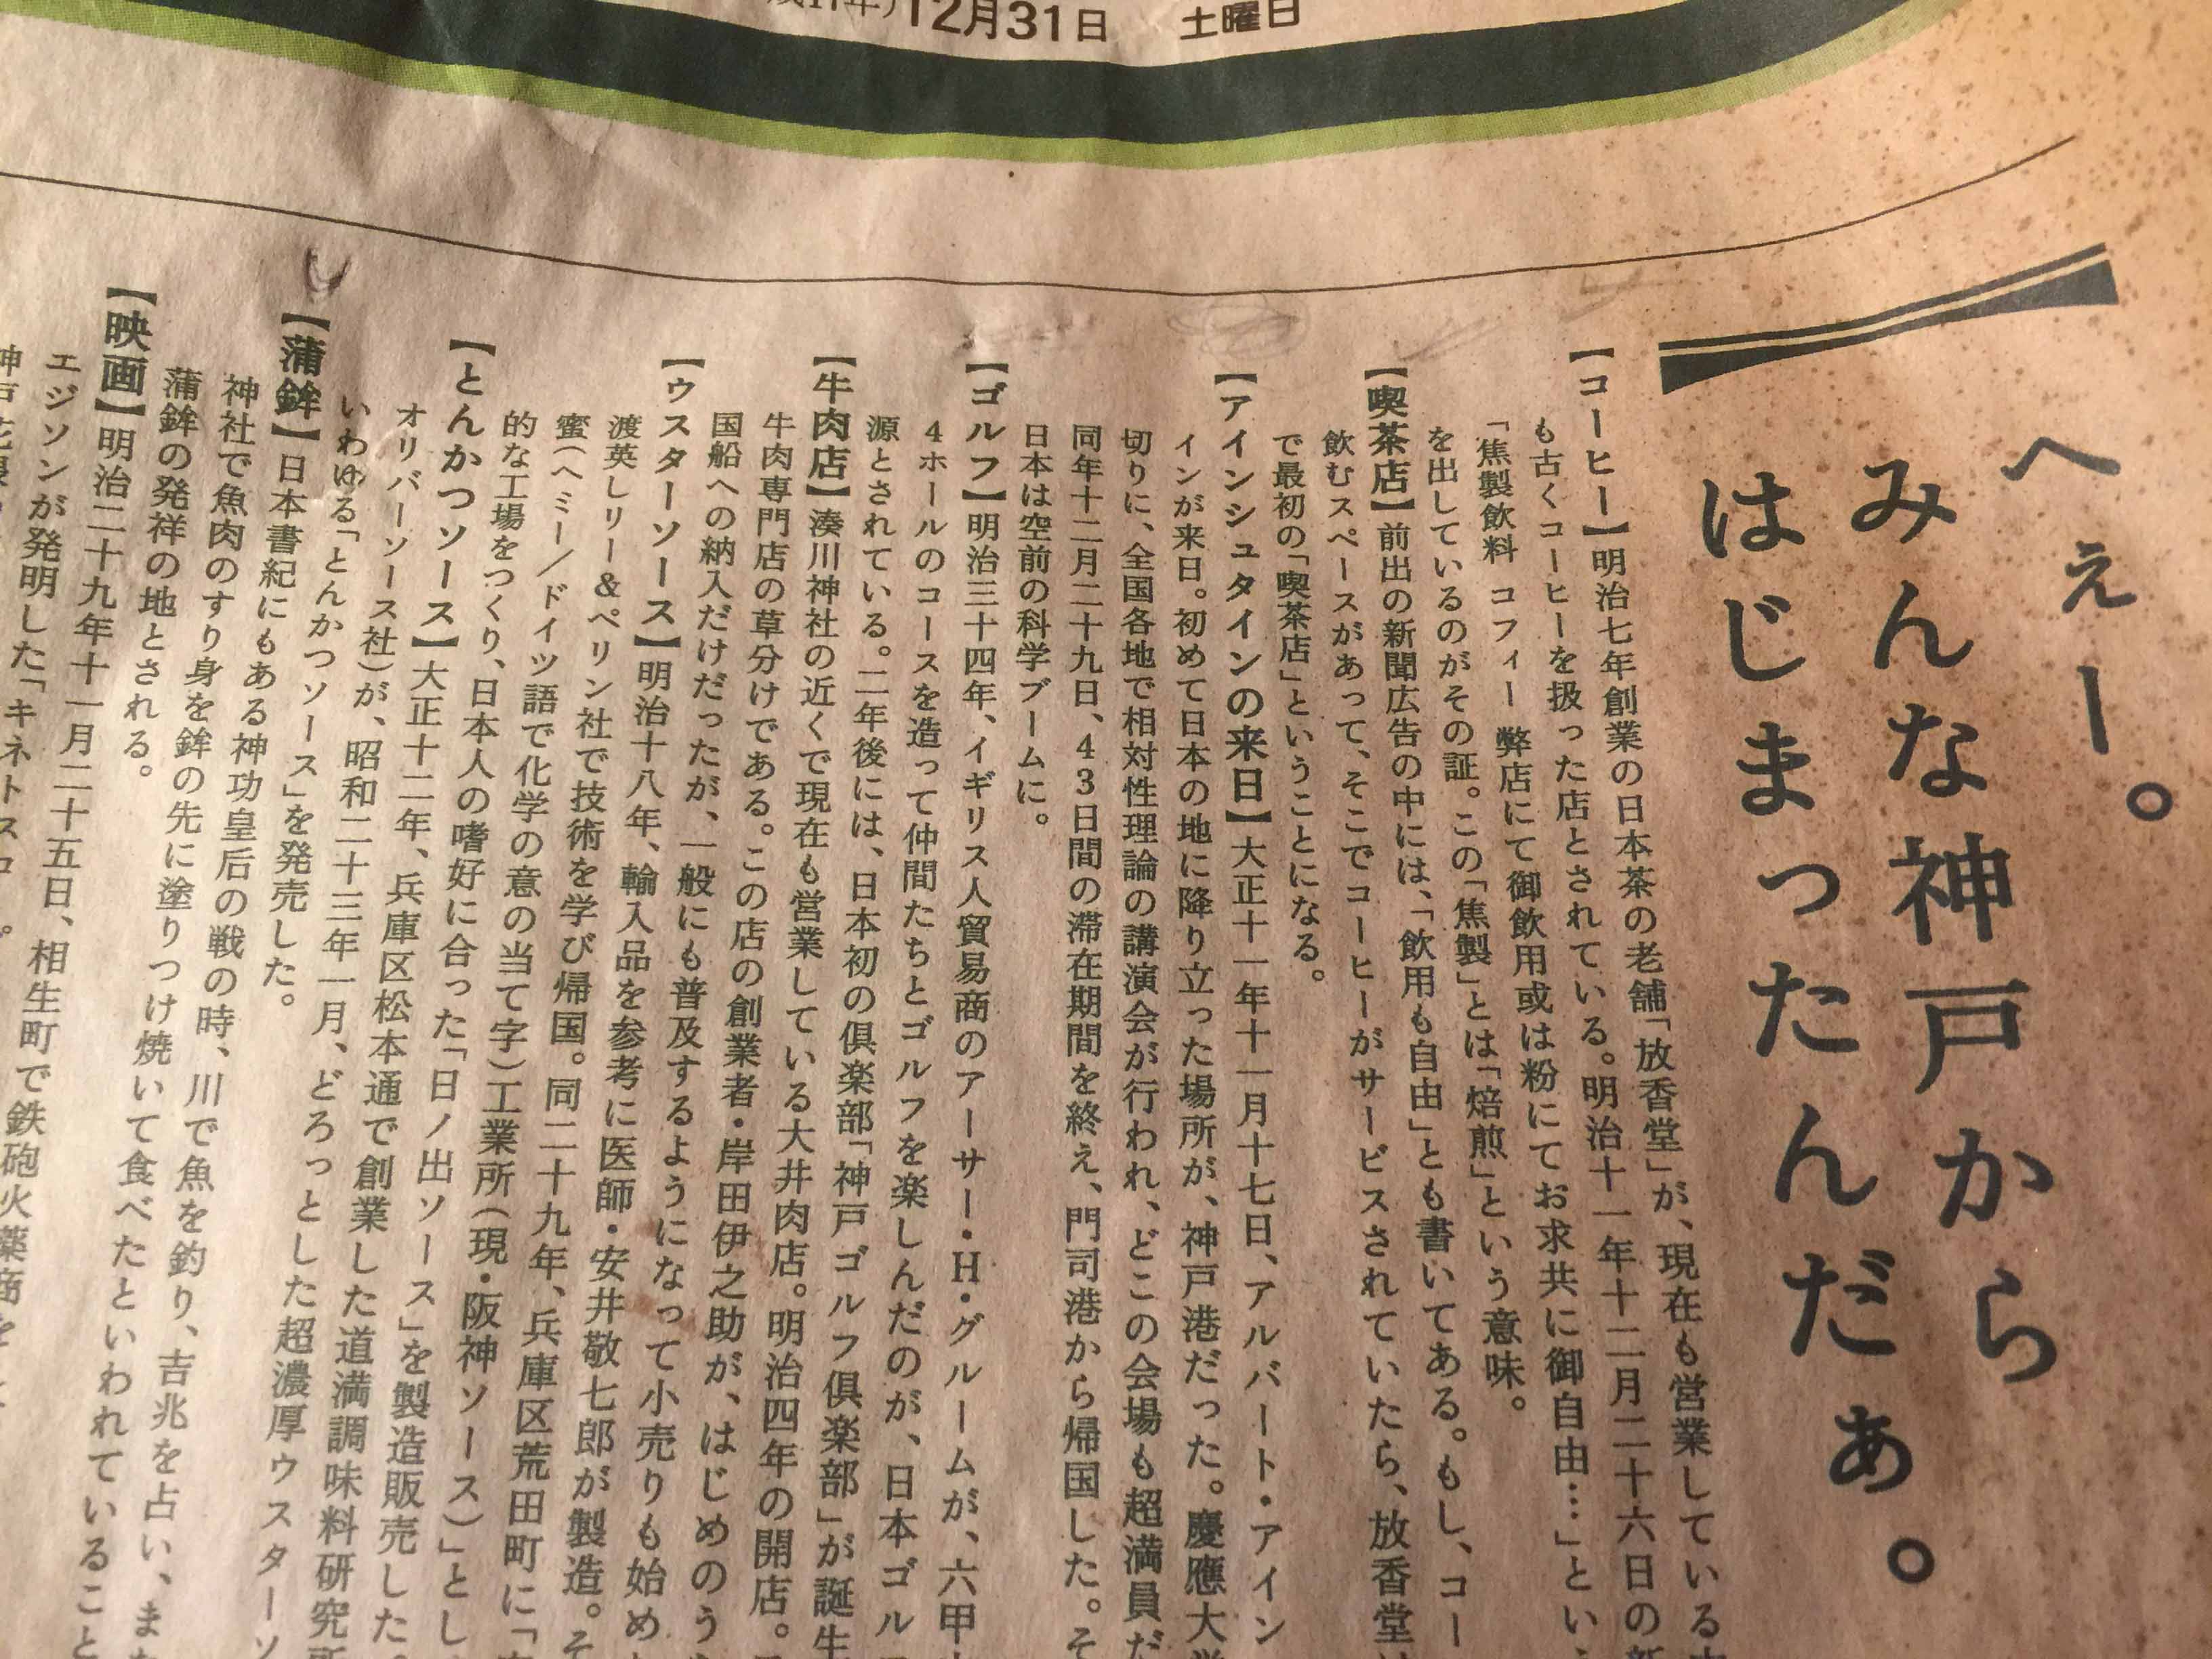 12月31日 土曜日
へぇー。
みんな神戸から
はじまったんだぁ。
【コーヒー】明治七年創業の日本茶の老舗「放香堂」が、現在も営業している
も古くコーヒーを扱った店とされている。明治十一年十二月二十六日の新
「焦製飲料 コフィー 弊店にて御飲用或は粉にてお求共に御自由…」とい
を出しているのがその証。この「焦製」とは「焙煎」という意味。
【喫茶店】前出の新聞広告の中には、「飲用も自由」とも書いてある。もし、コー
飲むスペースがあって、そこでコーヒーがサービスされていたら、放香堂
で最初の「喫茶店」ということになる。
【アインシュタインの来日】大正十一年十一月十七日、アルバート・アイン
インが来日。初めて日本の地に降り立った場所が、神戸港だった。慶應大学
切りに、全国各地で相対性理論の講演会が行われ、どこの会場も超満員だ
同年十二月二十九日、43日間の滞在期間を終え、門司港から帰国した。そ
日本は空前の科学ブームに。
【ゴルフ】明治三十四年、イギリス人貿易商のアーサー・H・グルームが、六甲
4ホールのコースを造って仲間たちとゴルフを楽しんだのが、日本ゴル
源とされている。二年後には、日本初の倶楽部「神戸ゴルフ倶楽部」が誕生
【牛肉店】湊川神社の近くで現在も営業している大井肉店。明治四年の開店。
牛肉専門店の草分けである。この店の創業者・岸田伊之助が、はじめのう
国船への納入だけだったが、一般にも普及するようになって小売りも始め
【ウスターソース】明治十八年、輸入品を参考に医師・安井敬七郎が製造。そ
渡英しリー&ペリン社で技術を学び帰国。同二十九年、兵庫区荒田町に「
蜜(ヘミー/ドイツ語で化学の意の当て字)工業所(現・阪神ソース)」とし
的な工場をつくり、日本人の嗜好に合った「日ノ出ソース」を製造販売した。
【とんかつソース】大正十二年、兵庫区松本通で創業した道満調味料研究所
オリバーソース社)が、昭和二十三年一月、どろっとした超濃厚ウスターソ
いわゆる「とんかつソース」を発売した。
【蒲鉾】日本書紀にもある神功皇后の戦の時、川で魚を釣り、吉兆を占い、また
神社で魚肉のすり身を鉾の先に塗りつけ焼いて食べたといわれていること
蒲鉾の発祥の地とされる。
【映画】明治二十九年十一月二十五日、相生町で鉄砲火薬商を
エジソンが発明した「キネトスコ